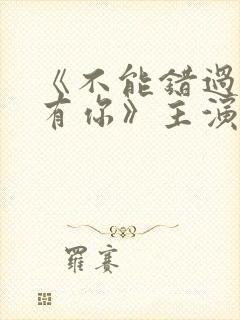 《不能错過
有你》主演
羅賽